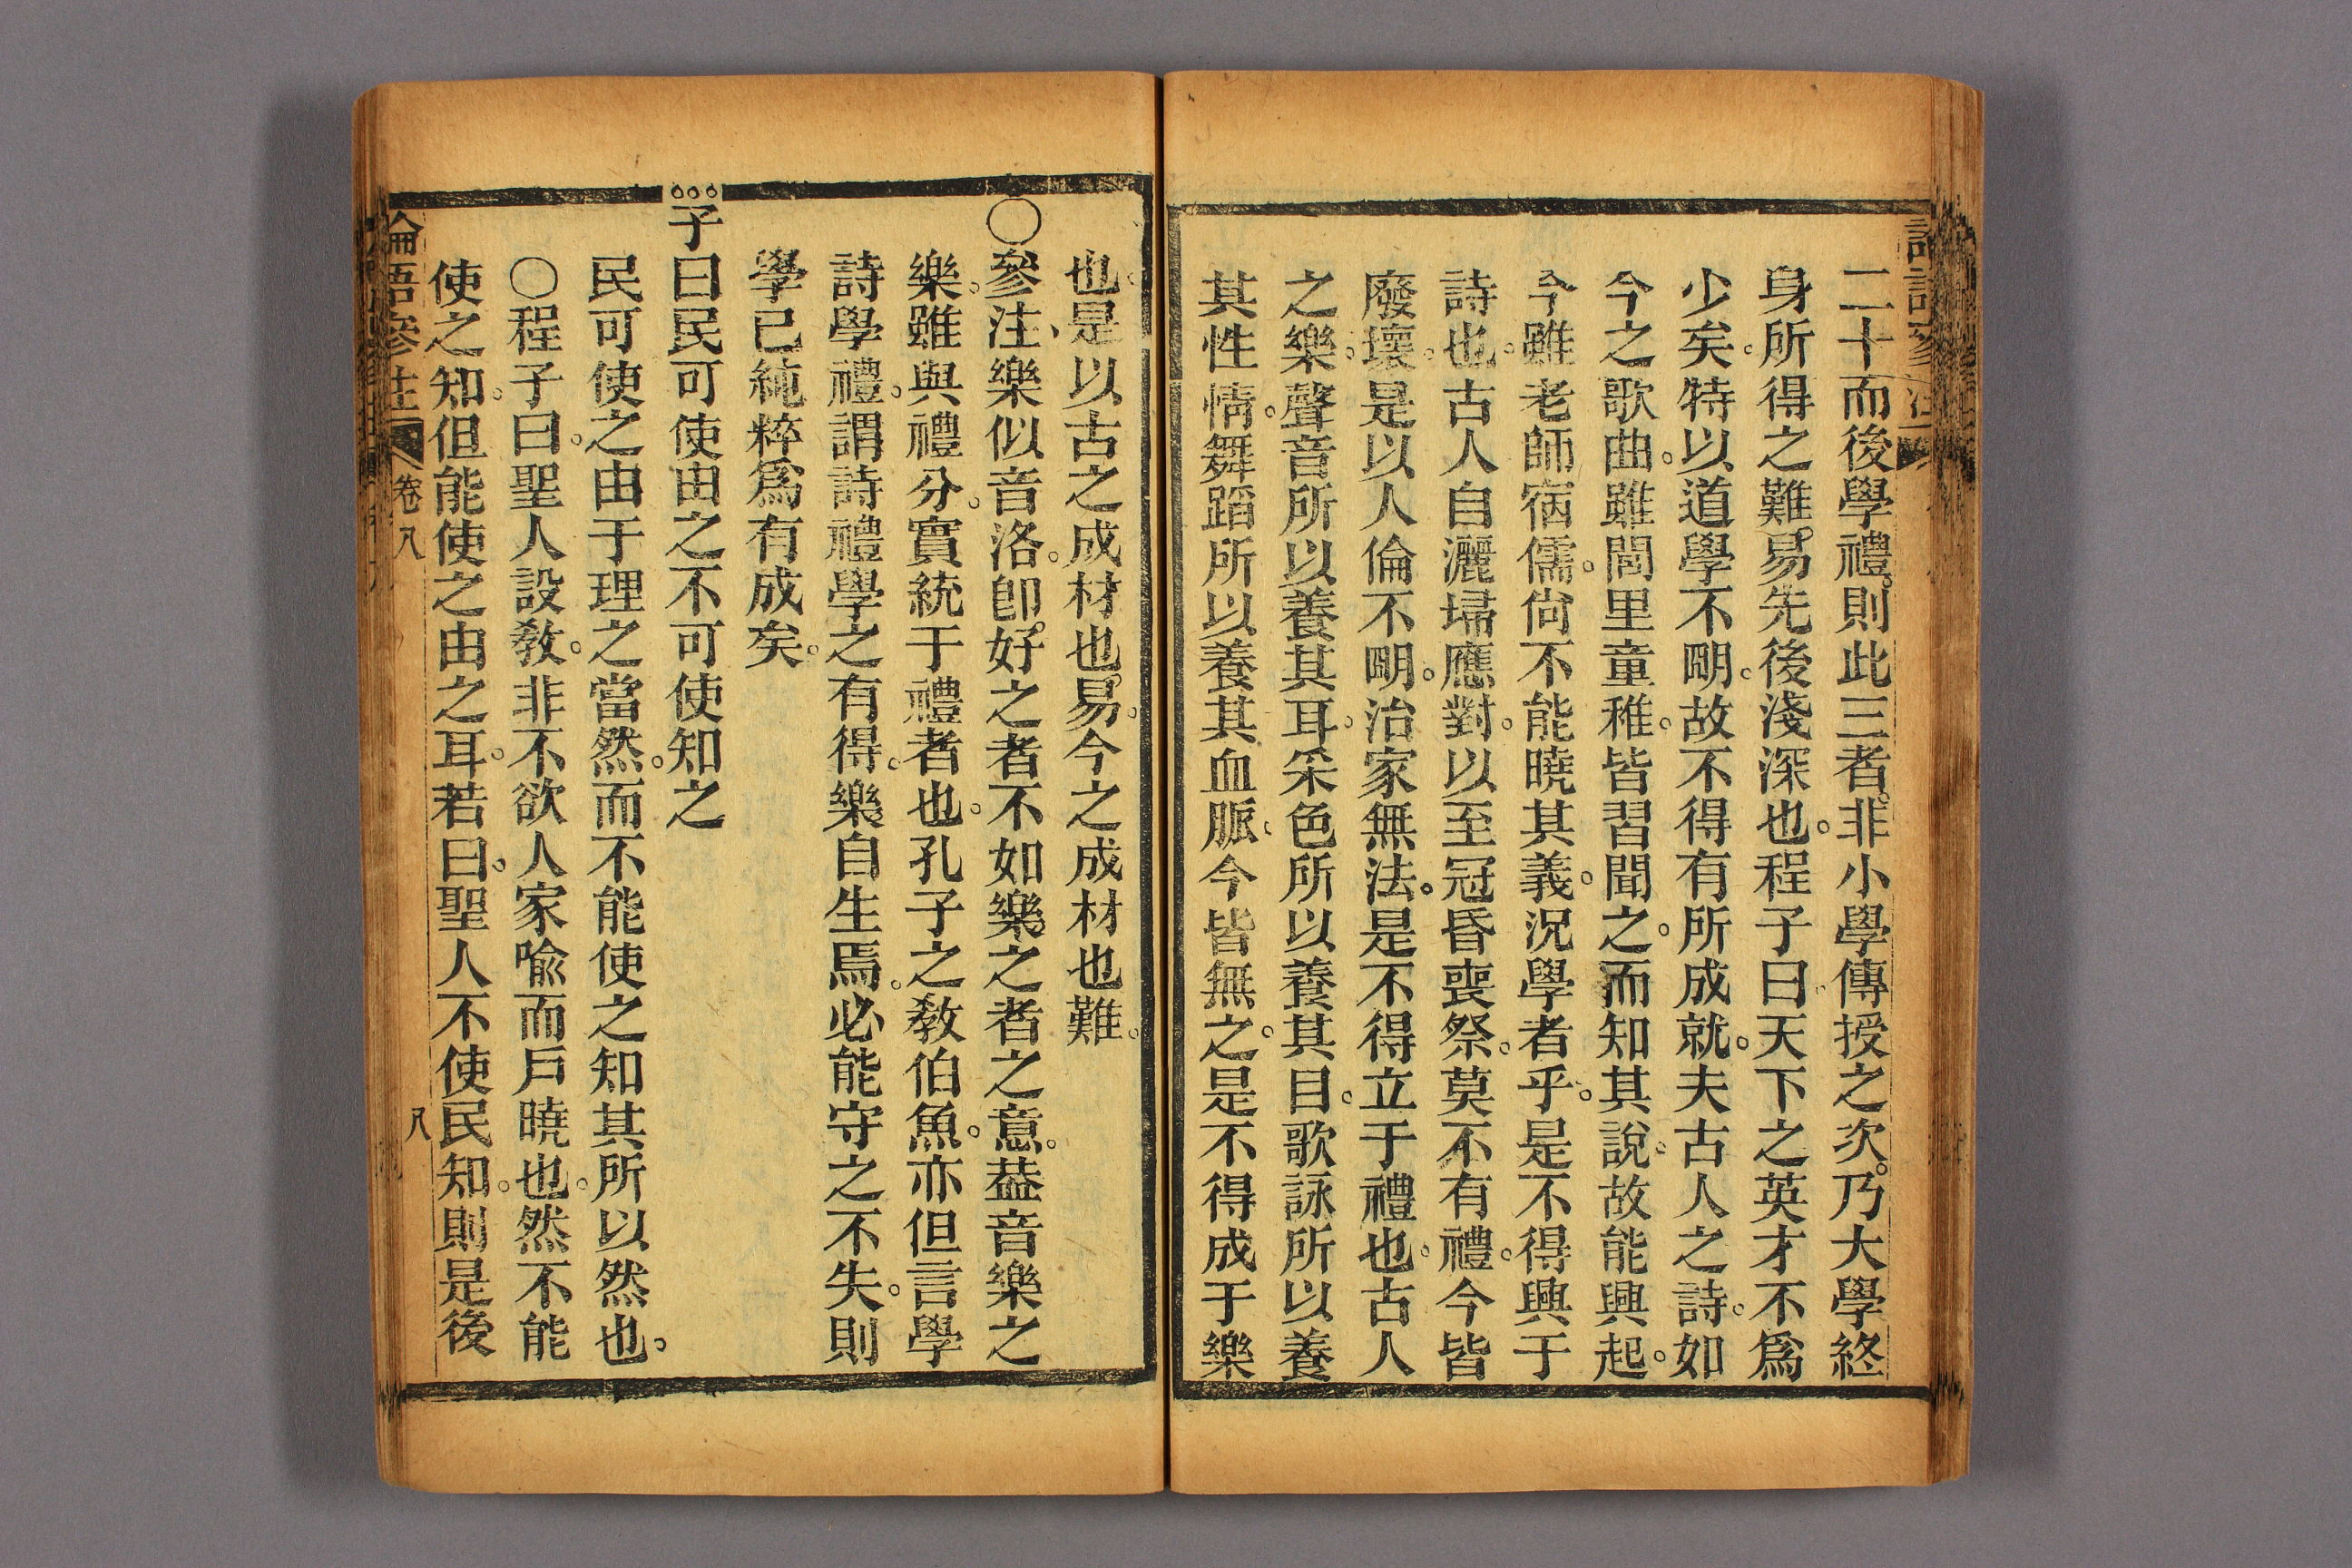 二十而後學禮。則此三者。非小學傳授之次。乃大學終
身所得之難。易先後淺深也。程子曰。天下之英才不爲
少矣。特以道學不明。故不得有所成就。夫古人之詩。如
今之歌曲。雖閭里童稚。皆習聞之。而知其說。故能興起。
今雖老師宿儒。尚不能曉其義。況學者乎。是不得興于
詩也。古人自灑埽應對。以至冠昏喪祭。莫不有禮。今皆
廢壞。是以人倫不明。治家無法。是不得立于禮也。古人
之樂。聲音所以養其耳。采色所以養其目。歌詠所以養
其性情。舞蹈所以養其血脈。今皆無之。是不得成于樂
也。是以古之成材也。易。今之成材也難。
〇參注、樂似音洛。卽。好之者不如樂之者之意。葢音樂之
樂。雖與禮分。實統于禮者也。孔子之敎伯魚。亦但言學
詩學禮。謂詩禮學之有得。樂自生焉。必能守之不失。則
學已純粹爲有成矣。
子曰民可使由之不可使知之
民可使之由于理之當然。而不能使之知其所以然也。
〇程子曰。聖人設敎。非不欲人家喻而戶曉也。然不能
使之知。但能使之由之耳。若曰。聖人不使民知。則是後
論語參注 卷八 八